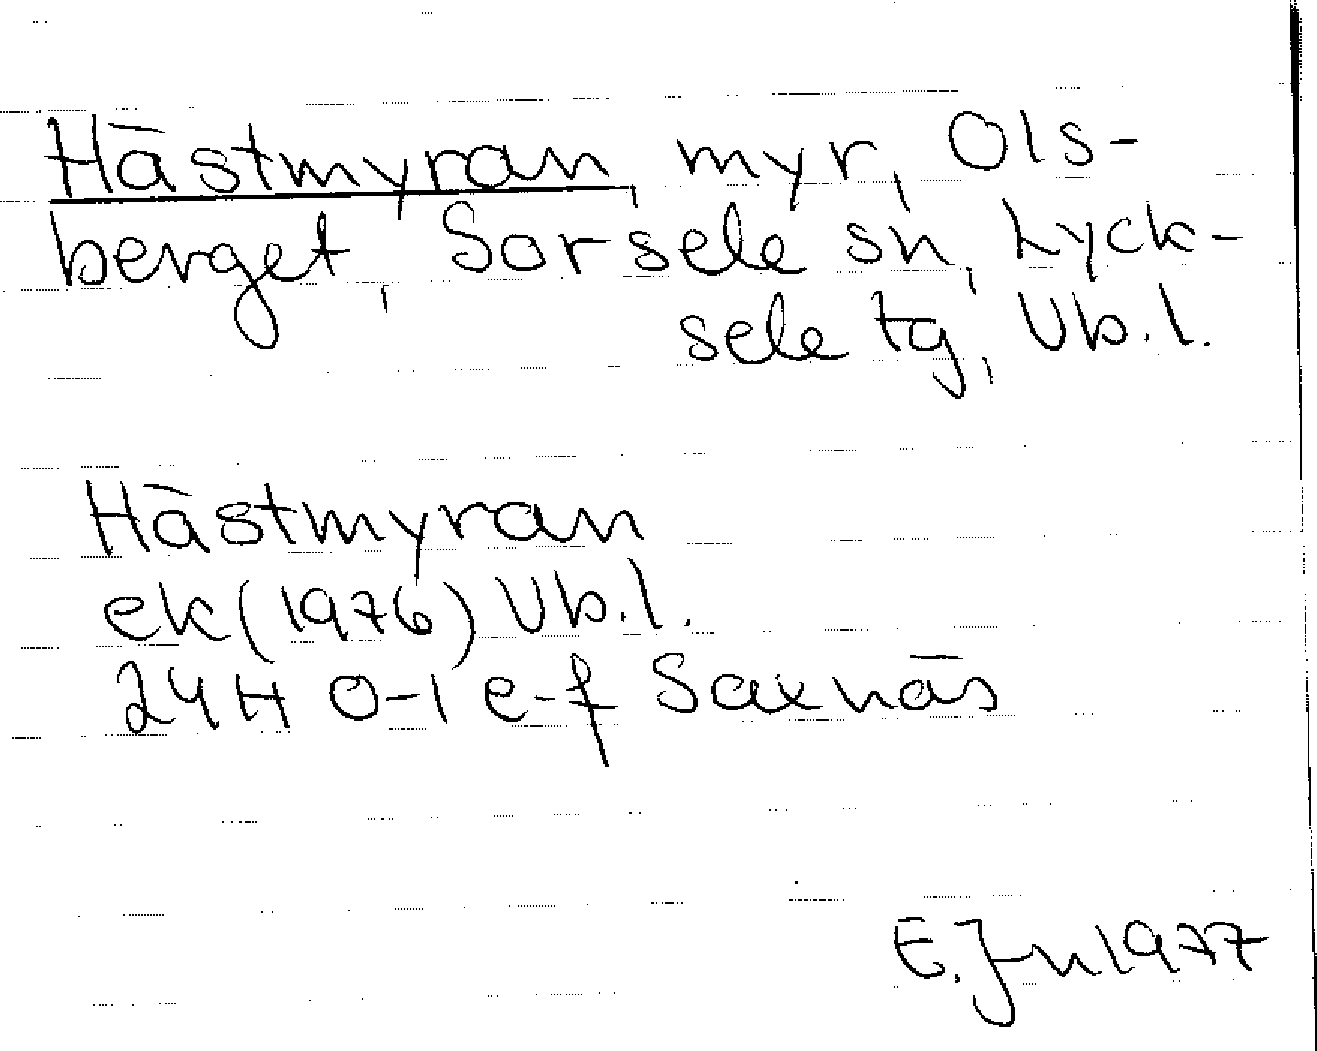 Hästmyran, myr, Ols-
berget, Sorsele sn, Lyck-
sele tg, Vb.l.
Hästmyran
ek (1976) Vb.l.
24H 0-1 e-f Saxnäs
E.J-n 1977